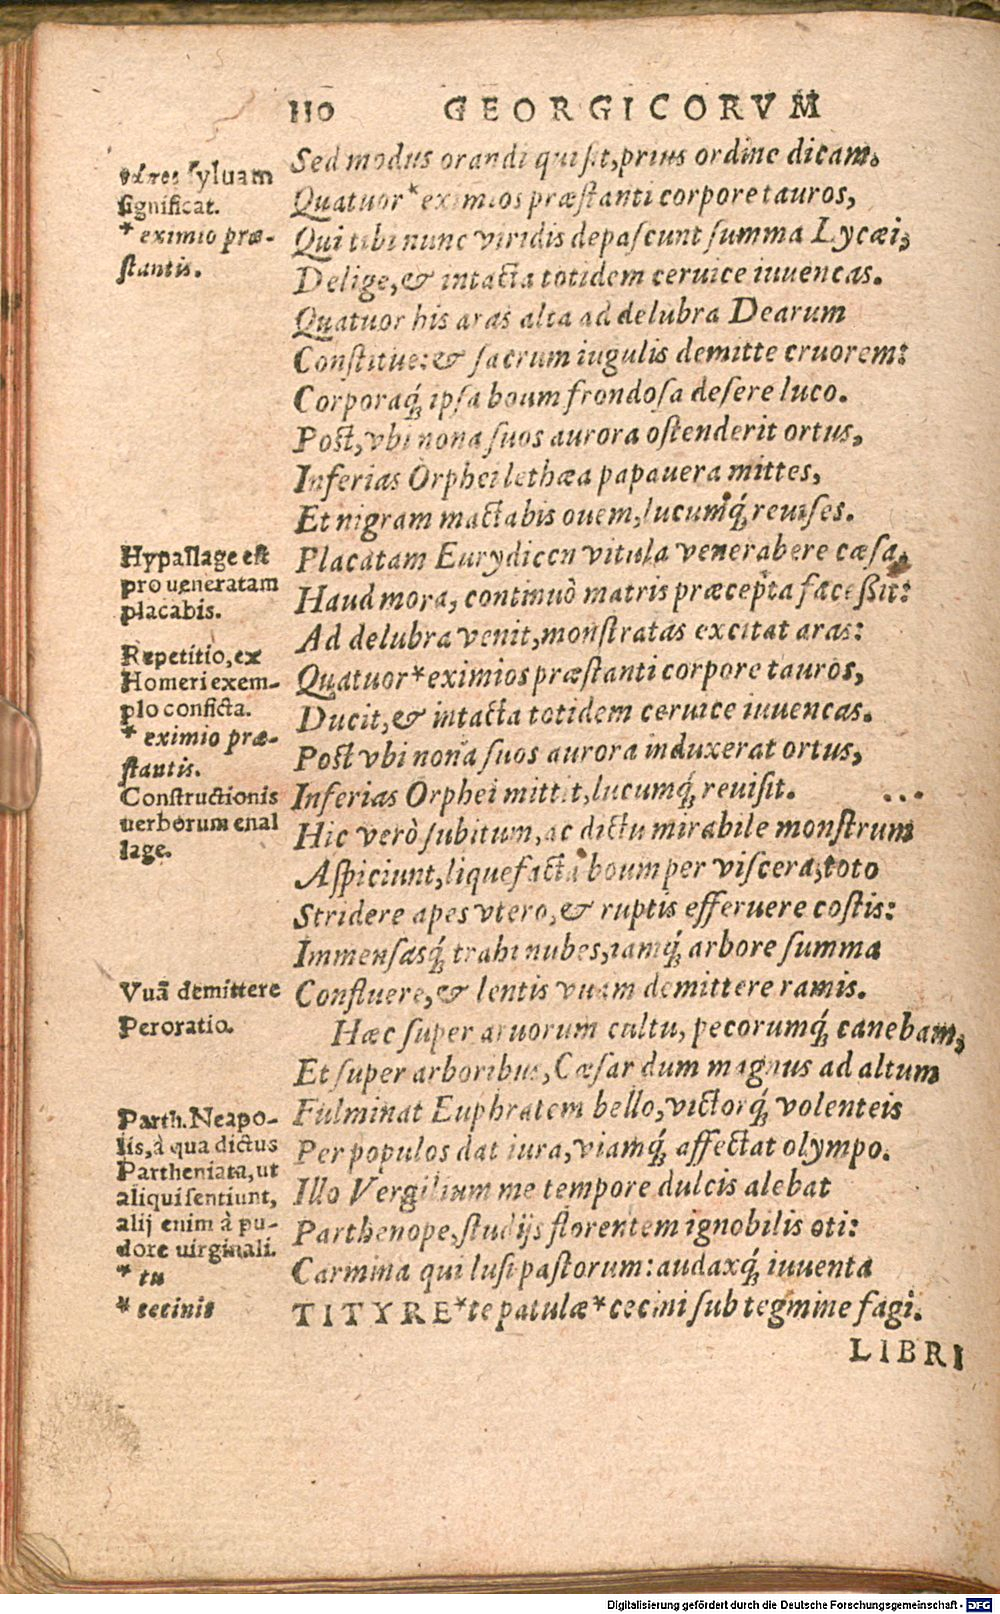 110 GEORGICORVM
Sed modus orandi qui sit, prius ordine dicam.
Quatuor * eximios præstanti corpore tauros,
Qui tibi nunc viridis depascunt summa Lycæi,
Delige, & intacta totidem ceruice iuuencas.
Quatuor his aras alta ad delubra Dearum
Constitue: & sacrum iugulis demitte cruorem:
Corporaq́; ipsa boum frondosa desere luco.
Post, vbi nona suos aurora ostenderit ortus,
Inferias Orphei lethæa papauera mittes,
Et nigram mactabis ouem, lucumq́; reuises.
Placatam Eurydicen vitula venerabere cæsa,
Haud mora, continuò matris præcepta facessit:
Ad delubra venit, monstratas excitat aras:
Quatuor * eximios præstanti corpore tauros,
Ducit, & intacta totidem ceruice iuuencas.
Post vbi nona suos aurora induxerat ortus,
Inferias Orphei mittit, lucumq́; reuisit. ...
Hic verò subitum, ac dictu mirabile monstrum
Aspiciunt, liquefacta boum per viscera, toto
Stridere apes vtero, & ruptis efferuere costis:
Immensasq́; trahi nubes, iamq́; arbore summa
Confluere, & lentis vuam demittere ramis.
Hæc super aruorum cultu, pecorumq́; canebam,
Et super arboribus, Cæsar dum magnus ad altum
Fulminat Euphratem bello, victorq́; volenteis
Per populos dat iura, viamq́; affectat olympo.
Illo Vergilium me tempore dulcis alebat
Parthenope, studijs florentem ignobilis oti:
Carmina qui lusi pastorum: audaxq́; iuuenta
TITYRE * te patulæ * cecini sub tegmine fagi.
LIBRI
syluam
significat.
* eximio præ-
stantis.
Hypallage est
pro ueneratam
placabis.
Repetitio, ex
Homeri exem-
plo conficta.
* eximio præ-
stantis.
Constructionis
uerborum enal
lage.
Vuã demittere
Peroratio.
Parth. Neapo-
lis, à qua dictus
Partheniata, ut
aliqui sentiunt,
alij enim à pu-
dore uirginali.
* tu
* cecinit
Digitalisierung gefördert durch die Deutsche Forschungsgemeinschaft - DFG